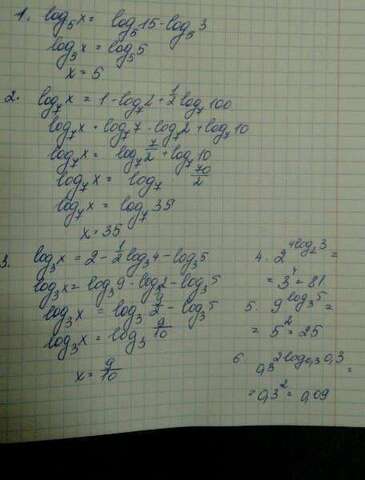 1. log₅x = log₅15 - log₅3
log₅x = log₅5
x = 5
2. log₇x = 1 - log₇2 + 1/2 log₇100
log₇x = log₇7 - log₇2 + log₇10
log₇x = log₇ 7/2 + log₇10
log₇x = log₇ 70/2
log₇x = log₇35
x = 35
3. log₃x = 2 - 1/2 log₃4 - log₃5
log₃x = log₃9 - log₃2 - log₃5
log₃x = log₃ 9/2 - log₃5
log₃x = log₃ 9/10
x = 9/10
4. 2^(4log₂3) =
= 3⁴ = 81
5. 9^(log₃5) =
= 5² = 25
6. 0,3^(2log₀,₃0,3) =
= 0,3² = 0,09